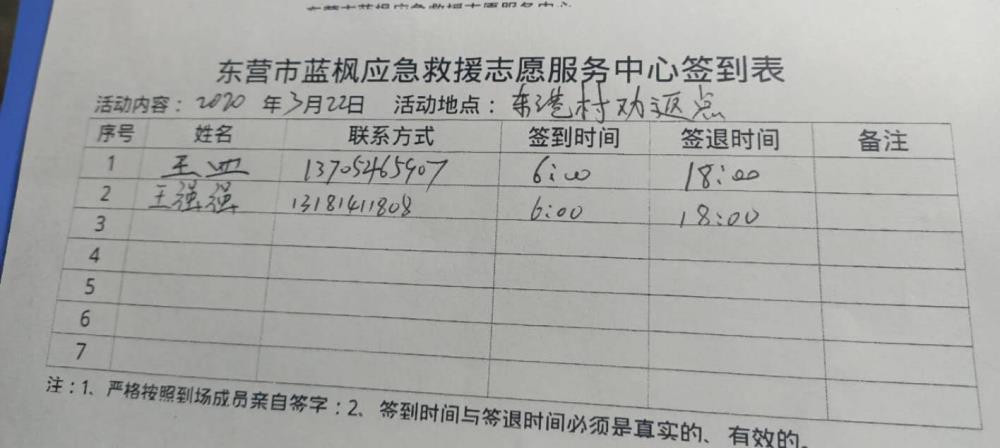 东营市蓝枫应急救援志愿服务中心
东营市蓝枫应急救援志愿服务中心签到表
活动内容：2020 年3月22日 活动地点：东港村劝返点
序号 姓名 联系方式 签到时间 签退时间 备注
1 王 13705465907 6:00 18:00
2 王强强 13181411808 6:00 18:00
3
4
5
6
7
注：1、严格按照到场成员亲自签字；2、签到时间与签退时间必须是真实的、有效的。